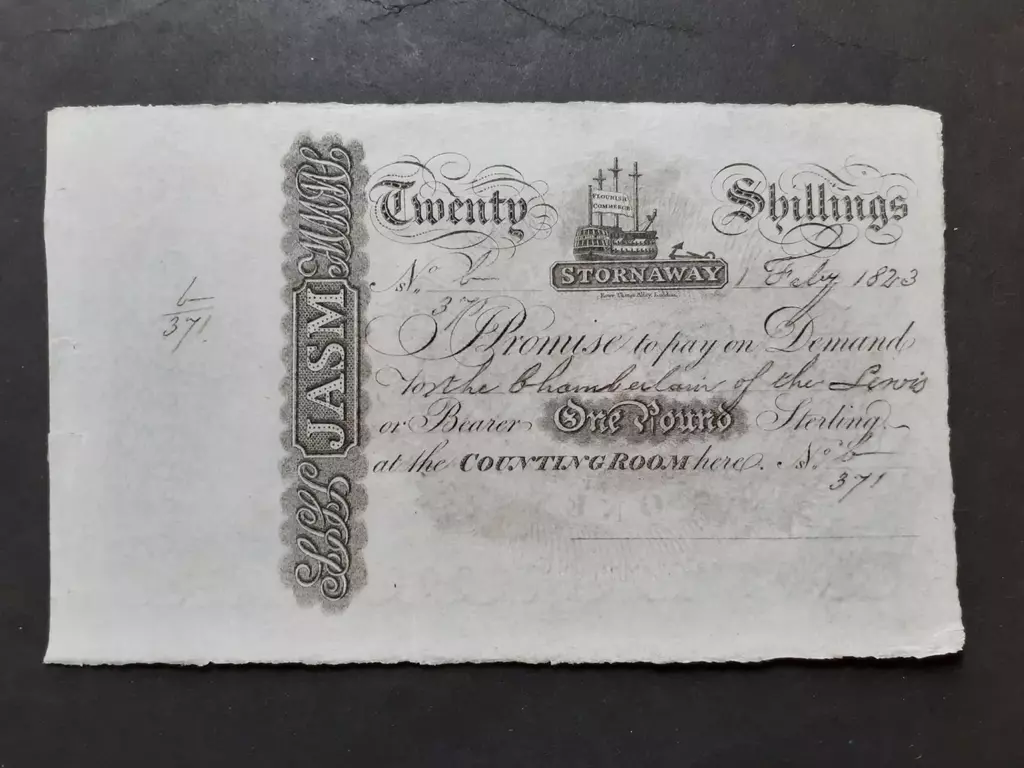 Twenty Shillings
FLOURISH
COMMERCE
STORNAWAY
Rowe Change Alley, London.
No. b/371
1 Feby 1823
I Promise to pay on Demand
to the Chamberlain of the Lewis
or Bearer One Pound Sterling
at the COUNTING ROOM here. No. b/371
JASM
b/371.